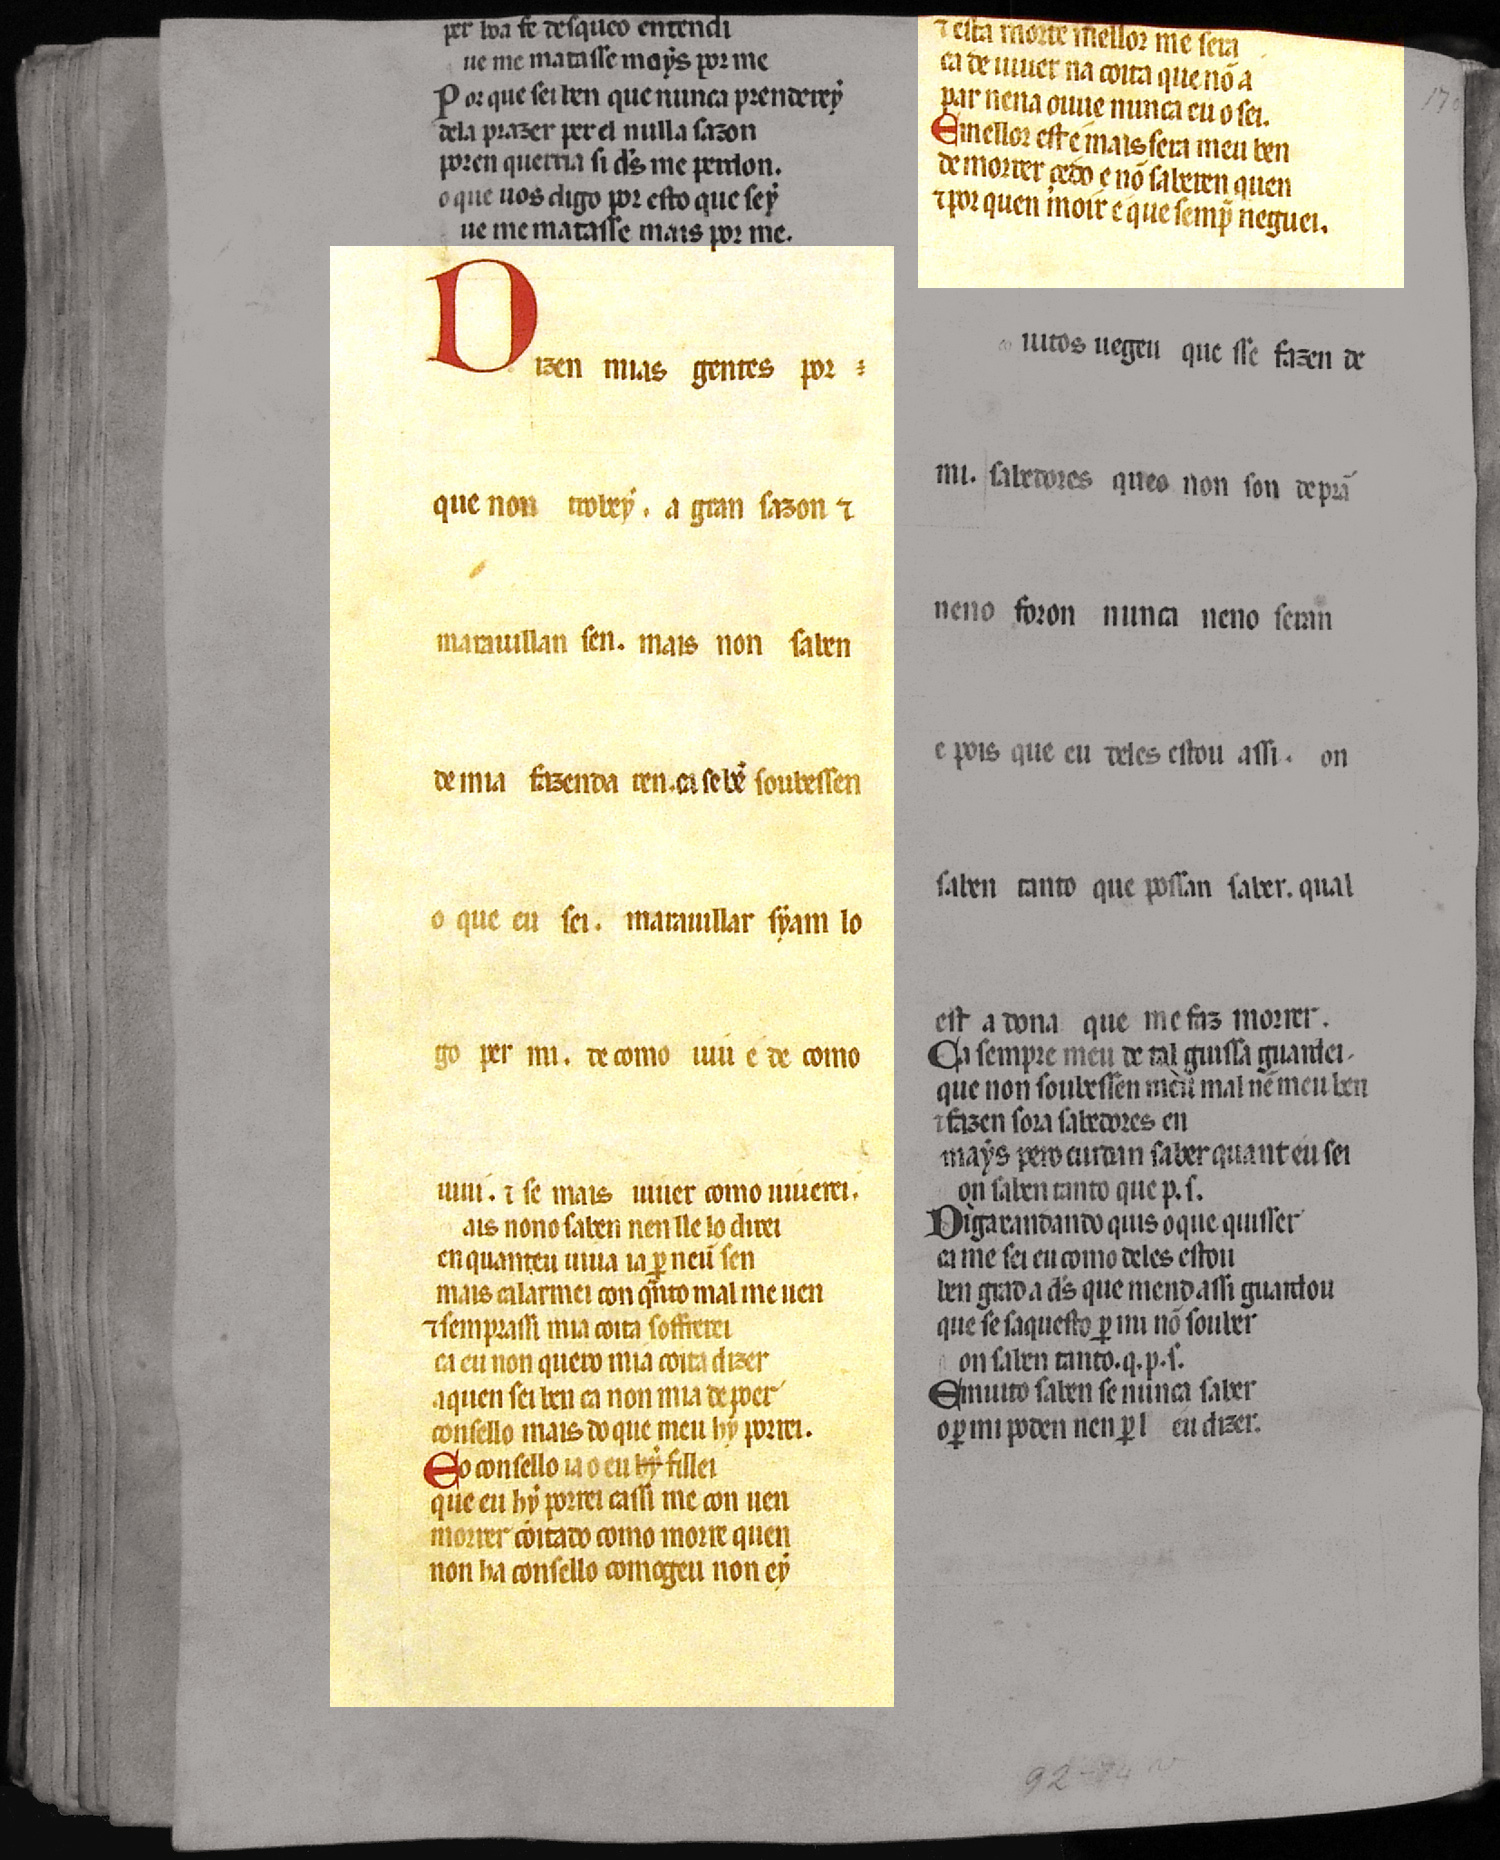 per boa fe desqueo entendi
ue me matasse moỹs por me
Por que sei ben que nunca prendereẏ
dela prazer per el nulla sazon
poren querria si d̅s me perdon.
o que uos digo por esto que seẏ
ue me matasse mais por me.
Dizen mias gentes por
que non trobeẏ. a gran sazon ⁊
marauillan sen. mais non saben
de mia fazenda ren. ca se bẽ soubessen
o que eu sei. marauillar sẏam lo
go per mi. de como uiui e de como
uiui. ⁊ se mais uiuer como uiuerei.
ais nono saben nen lle lo direi
en quanteu uiua ia ꝑ neũ sen
mais calarmei con qnto mal me uen
⁊ semprassi mia coita soffrerei
ca eu non quero mia coita dizer
aquen sei ben ca non mia de poer
consello mais do que meu hẏ porrei.
Eo consello ia o eu hẏ fillei
que eu hẏ porrei cassi me con uen
morrer coitado como morre quen
non ha consello comogeu non eẏ
⁊ esta morte mellor me sera
ca de uiuer na coita que nõ a
par nena ouue nunca eu o sei.
E mellor est e mais sera meu ben
de morrer cedo e nõ saberen quen
⁊ por quen moir e que semp̃ neguei.
uitos uegeu que sse fazen de
mi. sabedores queo non son de prã
neno foron nunca neno seran
e pois que eu deles estou assi. on
saben tanto que possan saber. qual
est a dona que me faz morrer.
Ca sempre meu de tal guissa guardei.
que non soubessen meu mal nẽ meu ben
⁊ fazen sora sabedores en
maẏs pero cuidan saber quant eu sei
on saben tanto que p. s.
Digarandando quis o que quisser
ca me sei eu como deles estou
ben grad a d̅s que mend assi guardou
que se saquesto ꝑ mi nõ souber
on saben tanto. q. p. s.
E muito saben se nunca saber
o ꝑ mi poden nen ꝑ l eu dizer.
92-94